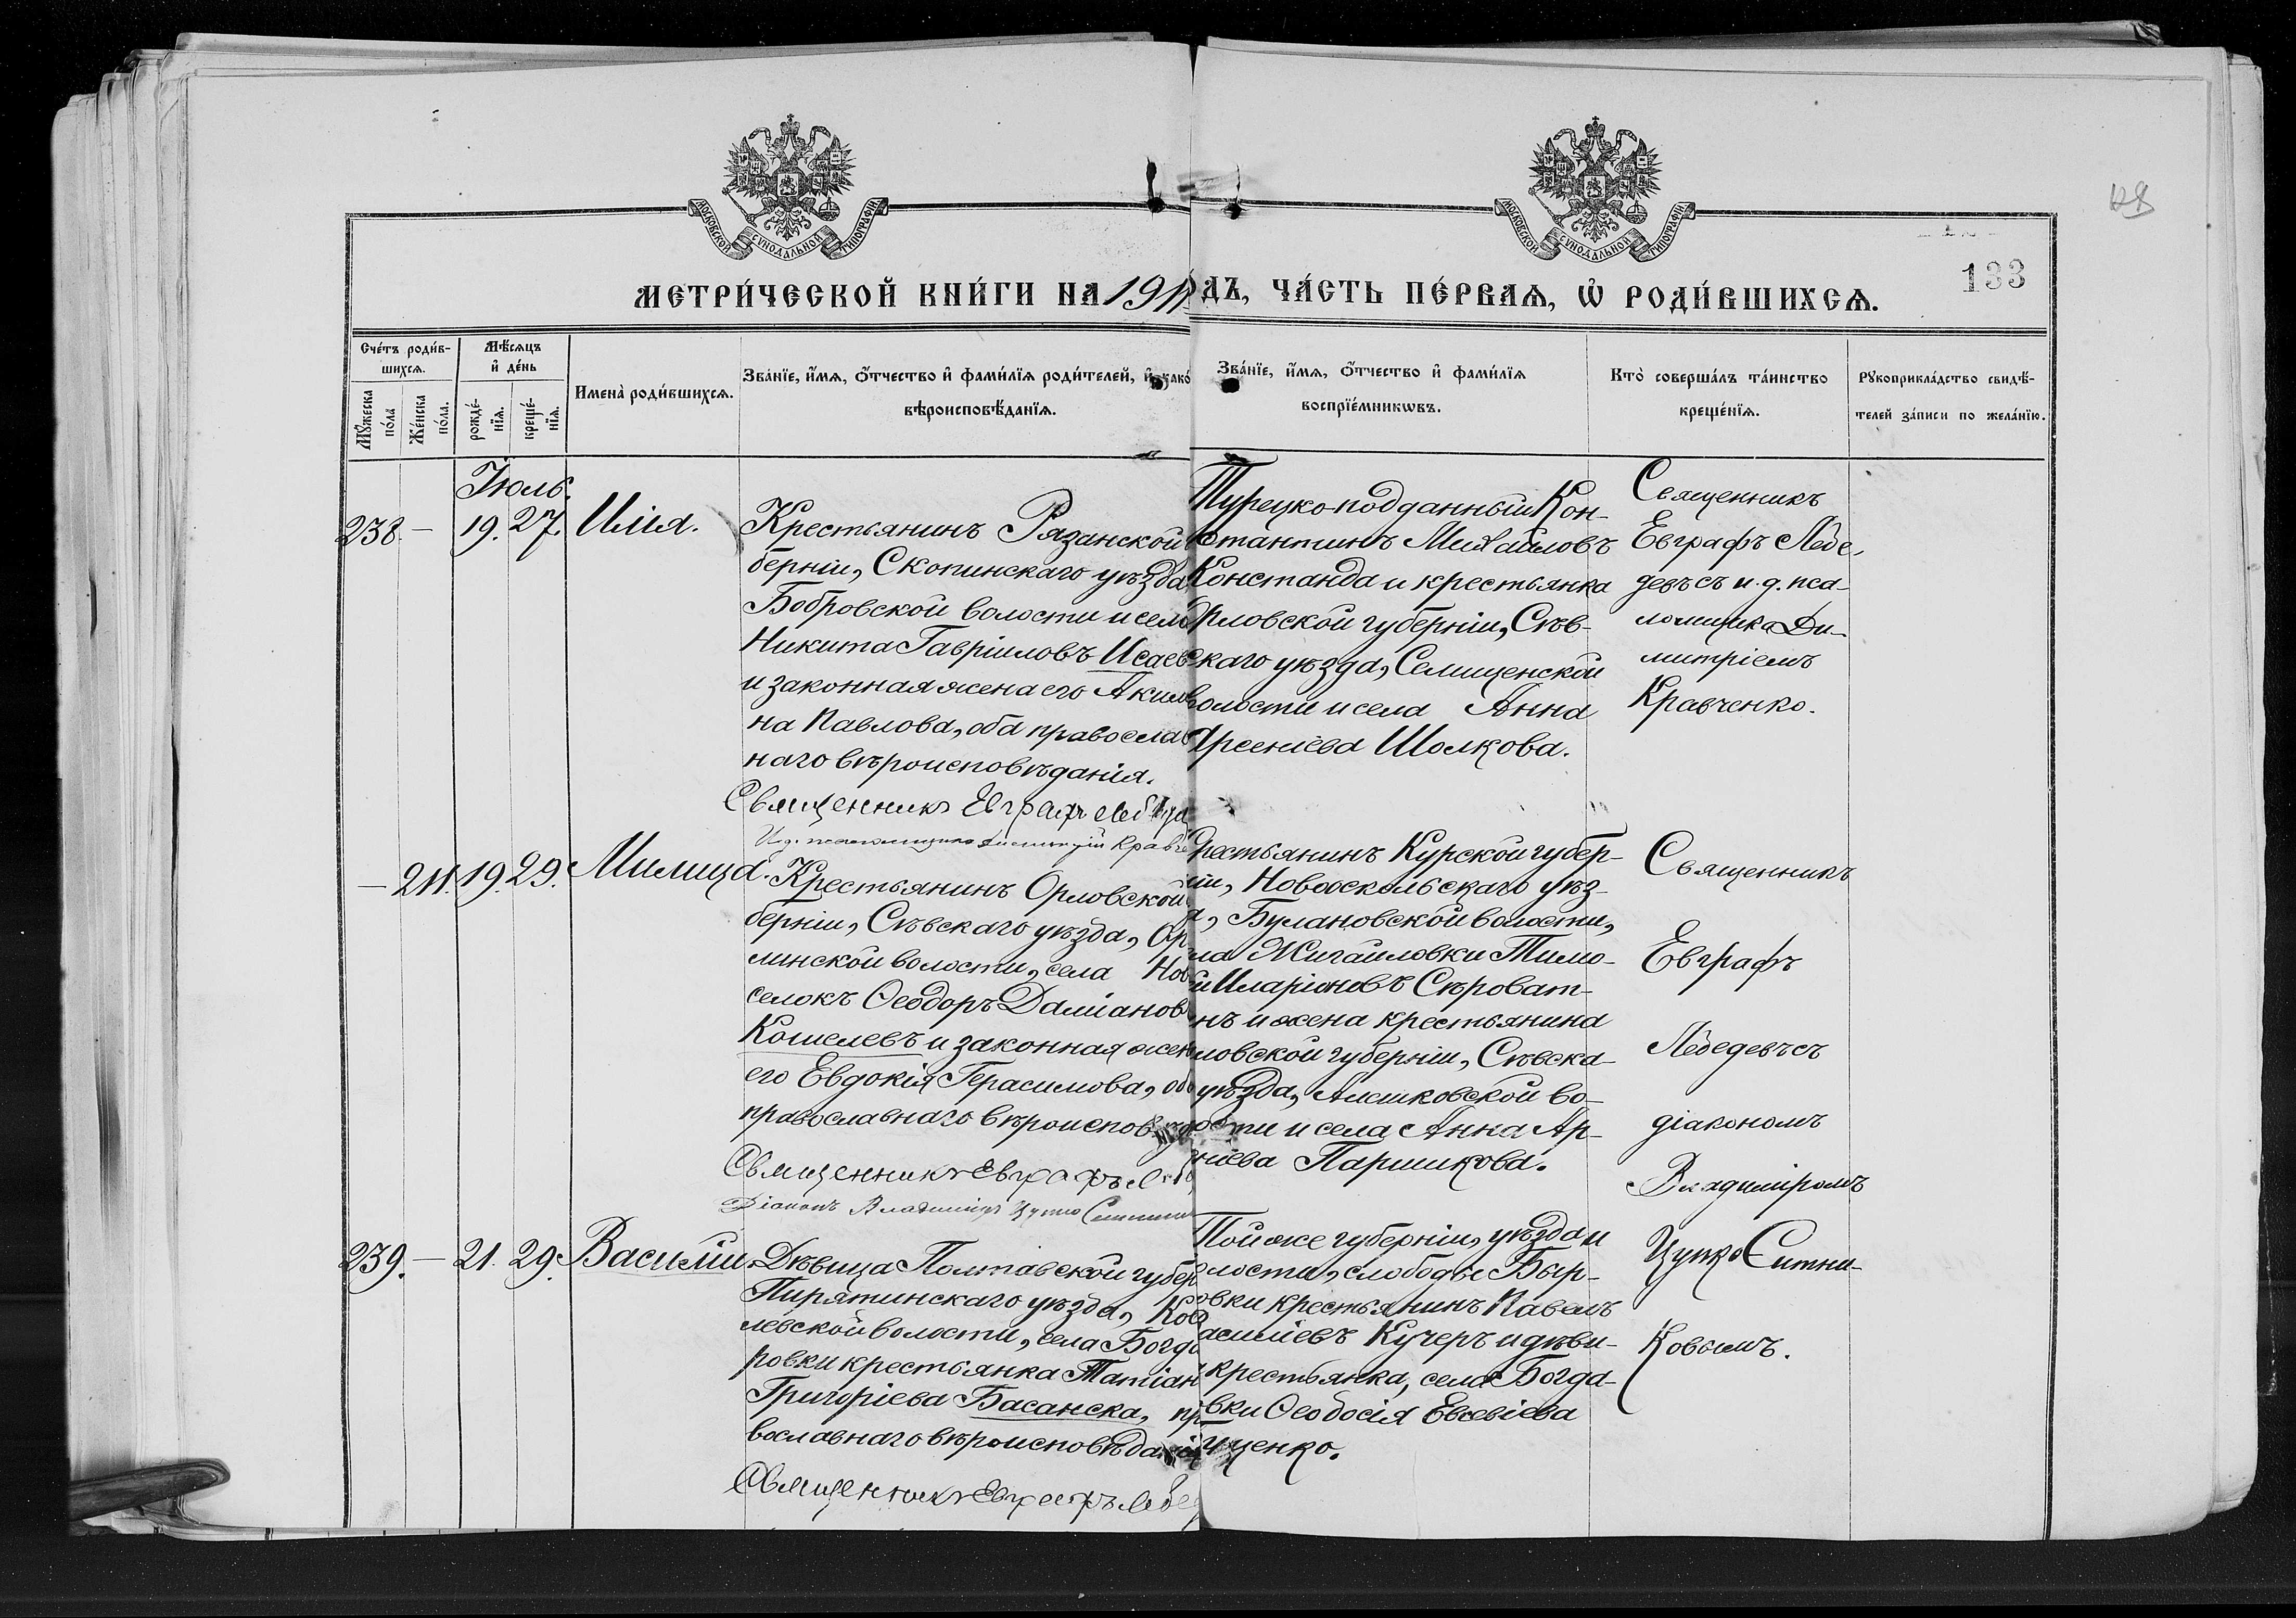 МОСКОВСКОЙ СѴНОДАЛЬНОЙ ТИПОГРАФІИ
МОСКОВСКОЙ СѴНОДАЛЬНОЙ ТИПОГРАФІИ
133
МЕТРИ́ЧЕСКОЙ КНИ́ГИ НА 191
ДЪ, ЧА́СТЬ ПЕ́РВАѦ, Ѡ҆ РОДИ́ВШИХСѦ.
Сче́тъ роди́в-
шихсѧ.
Мꙋ́жеска по́ла
Же́нска по́ла.
Мѣ́сѧцъ
и҆ де́нь
рожде́-
нїѧ.
креще́-
нїѧ.
Имена̀ роди́вшихсѧ.
Зва́нїе, и҆́мѧ, ѻ҆́тчество и҆ фами́лїѧ роди́телей, и҆ како́
вѣроисповѣ́данїѧ.
Зва́нїе, и҆́мѧ, ѻ҆́тчество и҆ фами́лїѧ
воспрїе́мникѡвъ.
Кто̀ соверша́лъ та́инство
креще́нїѧ.
Рꙋкоприкла́дство свидѣ́-
телей за́писи по жела́нїю.
Іюль.
238. — 19. 27. Илія.
Крестьянинъ Рязанской
берніи, Скопинскаго уѣзда
Бобровской волости и села
Никита Гавріиловъ Исаев
и законная жена его Акили
на Павлова, оба православ
наго вѣроисповѣданія.
Священникъ Евграфъ Лебед
И.д. псаломщика Димитрій Кравче
Турецко-подданный Кон-
стантинъ Михайловъ
Констанда и крестьянка
Орловской губерніи, Сѣв-
скаго уѣзда, Селищенской
волости и села Анна
Арсеніева Шолкова.
Священникъ
Евграфъ Лебе-
девъ съ и.д. пса-
ломщика Ди-
митріемъ
Кравченко.
— 211. 19. 29. Милица.
Крестьянинъ Орловской
берніи, Сѣвскаго уѣзда, Ор
линской волости, села Нов
селокъ Ѳеодоръ Даміанов
Кошелевъ и законная жен
его Евдокія Герасимова, об
православнаго вѣроисповѣд
Священникъ Евграфъ Леб
Діаконъ Владиміръ Цупко Ситни
рестьянинъ Курской губер-
ніи, Новооскольскаго уѣз-
а, Булановской волости,
ла Жигайловки Тимо-
й Иларіоновъ Сѣроват-
нъ и жена крестьянина
ловской губерніи, Сѣвска-
уѣзда, Алешковской во-
ости и села Анна Ар-
ніева Паршикова.
Священникъ
Евграфъ
Лебедевъ съ
діакономъ
Владиміромъ
Цупко Ситни-
ковымъ.
239. — 21. 29. Василій.
Дѣвица Полтавской губер
Пирятинскаго уѣзда, Ков
левской волости, села Богда
ровки крестьянка Татіан
Григоріева Басанска, пр
вославнаго вѣроисповѣдані
Священникъ Евграфъ Лебе
Той же губерніи, уѣзда и
лости, слободы Быр-
овки крестьянинъ Павелъ
асиліевъ Кучеръ и дѣви-
крестьянка, села Богда-
вки Ѳеодосія Евсевіева
щенко.